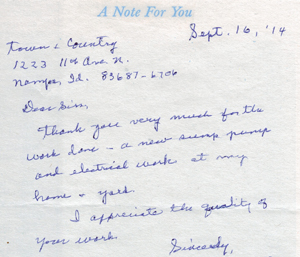 A Note For You
Sept. 16, '14
Town & Country
1223 11th Ave N.
Nampa, Id. 83687-6706
Dear Sirs,
Thank you very much for the
work done - a new sump pump
and electrical work at my
home - yard.
I appreciate the quality of
your work.
Sincerely,